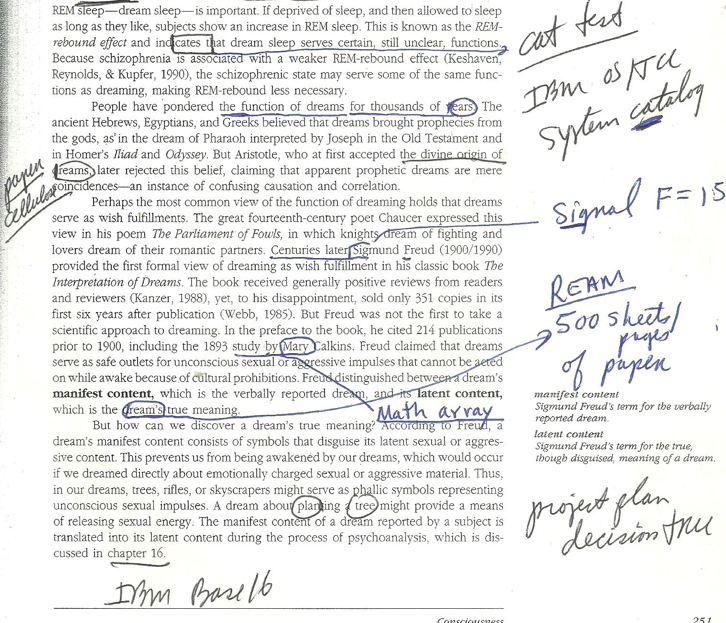 REM sleep—dream sleep—is important. If deprived of sleep, and then allowed to sleep
as long as they like, subjects show an increase in REM sleep. This is known as the REM-
rebound effect and indicates that dream sleep serves certain, still unclear, functions.
Because schizophrenia is associated with a weaker REM-rebound effect (Keshaven,
Reynolds, & Kupfer, 1990), the schizophrenic state may serve some of the same func-
tions as dreaming, making REM-rebound less necessary.
cat test
IBM OS/TCU
System catalog
People have pondered the function of dreams for thousands of years. The
ancient Hebrews, Egyptians, and Greeks believed that dreams brought prophecies from
the gods, as in the dream of Pharaoh interpreted by Joseph in the Old Testament and
in Homer's Iliad and Odyssey. But Aristotle, who at first accepted the divine origin of
dreams, later rejected this belief, claiming that apparent prophetic dreams are mere
coincidences—an instance of confusing causation and correlation.
paper
cellulose
Perhaps the most common view of the function of dreaming holds that dreams
serve as wish fulfillments. The great fourteenth-century poet Chaucer expressed this
view in his poem The Parliament of Fowls, in which knights dream of fighting and
lovers dream of their romantic partners. Centuries later Sigmund Freud (1900/1990)
provided the first formal view of dreaming as wish fulfillment in his classic book The
Interpretation of Dreams. The book received generally positive reviews from readers
and reviewers (Kanzer, 1988), yet, to his disappointment, sold only 351 copies in its
first six years after publication (Webb, 1985). But Freud was not the first to take a
scientific approach to dreaming. In the preface to the book, he cited 214 publications
prior to 1900, including the 1893 study by Mary Calkins. Freud claimed that dreams
serve as safe outlets for unconscious sexual or aggressive impulses that cannot be acted
on while awake because of cultural prohibitions. Freud distinguished between a dream's
manifest content, which is the verbally reported dream, and its latent content,
which is the dream's true meaning.
Signal F=15
REAM
500 sheets/
pages
of paper
Math array
manifest content
Sigmund Freud's term for the verbally
reported dream.
latent content
Sigmund Freud's term for the true,
though disguised, meaning of a dream.
But how can we discover a dream's true meaning? According to Freud, a
dream's manifest content consists of symbols that disguise its latent sexual or aggres-
sive content. This prevents us from being awakened by our dreams, which would occur
if we dreamed directly about emotionally charged sexual or aggressive material. Thus,
in our dreams, trees, rifles, or skyscrapers might serve as phallic symbols representing
unconscious sexual impulses. A dream about planting a tree might provide a means
of releasing sexual energy. The manifest content of a dream reported by a subject is
translated into its latent content during the process of psychoanalysis, which is dis-
cussed in chapter 16.
project plan
decision tree
IBM Base16
Consciousness 251